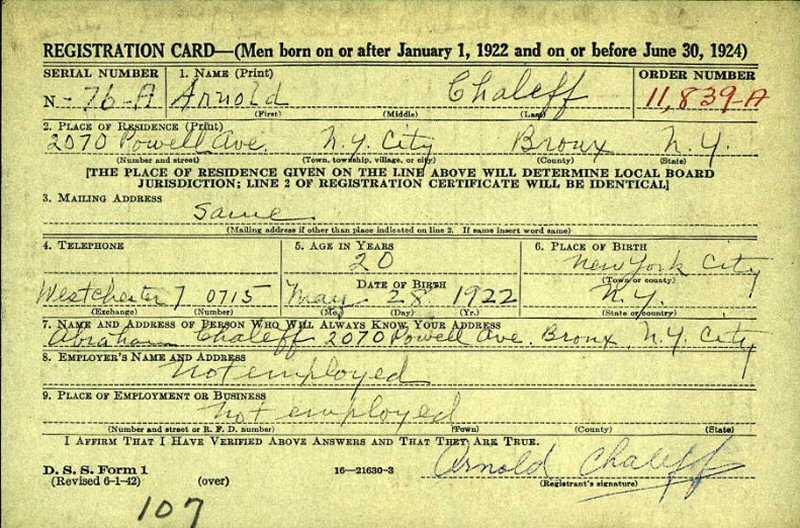 REGISTRATION CARD—(Men born on or after January 1, 1922 and on or before June 30, 1924)
SERIAL NUMBER 1. NAME (Print) ORDER NUMBER
N - 76-A Arnold Chaleff 11,839-A
(First) (Middle) (Last)
2. PLACE OF RESIDENCE (Print)
2070 Powell Ave. N.Y. City Bronx N.Y.
(Number and street) (Town, township, village, or city) (County) (State)
[THE PLACE OF RESIDENCE GIVEN ON THE LINE ABOVE WILL DETERMINE LOCAL BOARD
JURISDICTION; LINE 2 OF REGISTRATION CERTIFICATE WILL BE IDENTICAL]
3. MAILING ADDRESS
Same
(Mailing address if other than place indicated on line 2. If same insert word same)
4. TELEPHONE 5. AGE IN YEARS 6. PLACE OF BIRTH
20 New York City
DATE OF BIRTH (Town or county)
Westchester 7 0715 May 28 1922 N.Y.
(Exchange) (Number) (Mo.) (Day) (Yr.) (State or country)
7. NAME AND ADDRESS OF PERSON WHO WILL ALWAYS KNOW YOUR ADDRESS
Abraham Chaleff 2070 Powell Ave. Bronx, N.Y. City
8. EMPLOYER'S NAME AND ADDRESS
Not employed
9. PLACE OF EMPLOYMENT OR BUSINESS
Not employed
(Number and street or R. F. D. number) (Town) (County) (State)
I AFFIRM THAT I HAVE VERIFIED ABOVE ANSWERS AND THAT THEY ARE TRUE.
Arnold Chaleff
D. S. S. Form 1 16—21630-3 (Registrant's signature)
(Revised 6-1-42) (over)
107